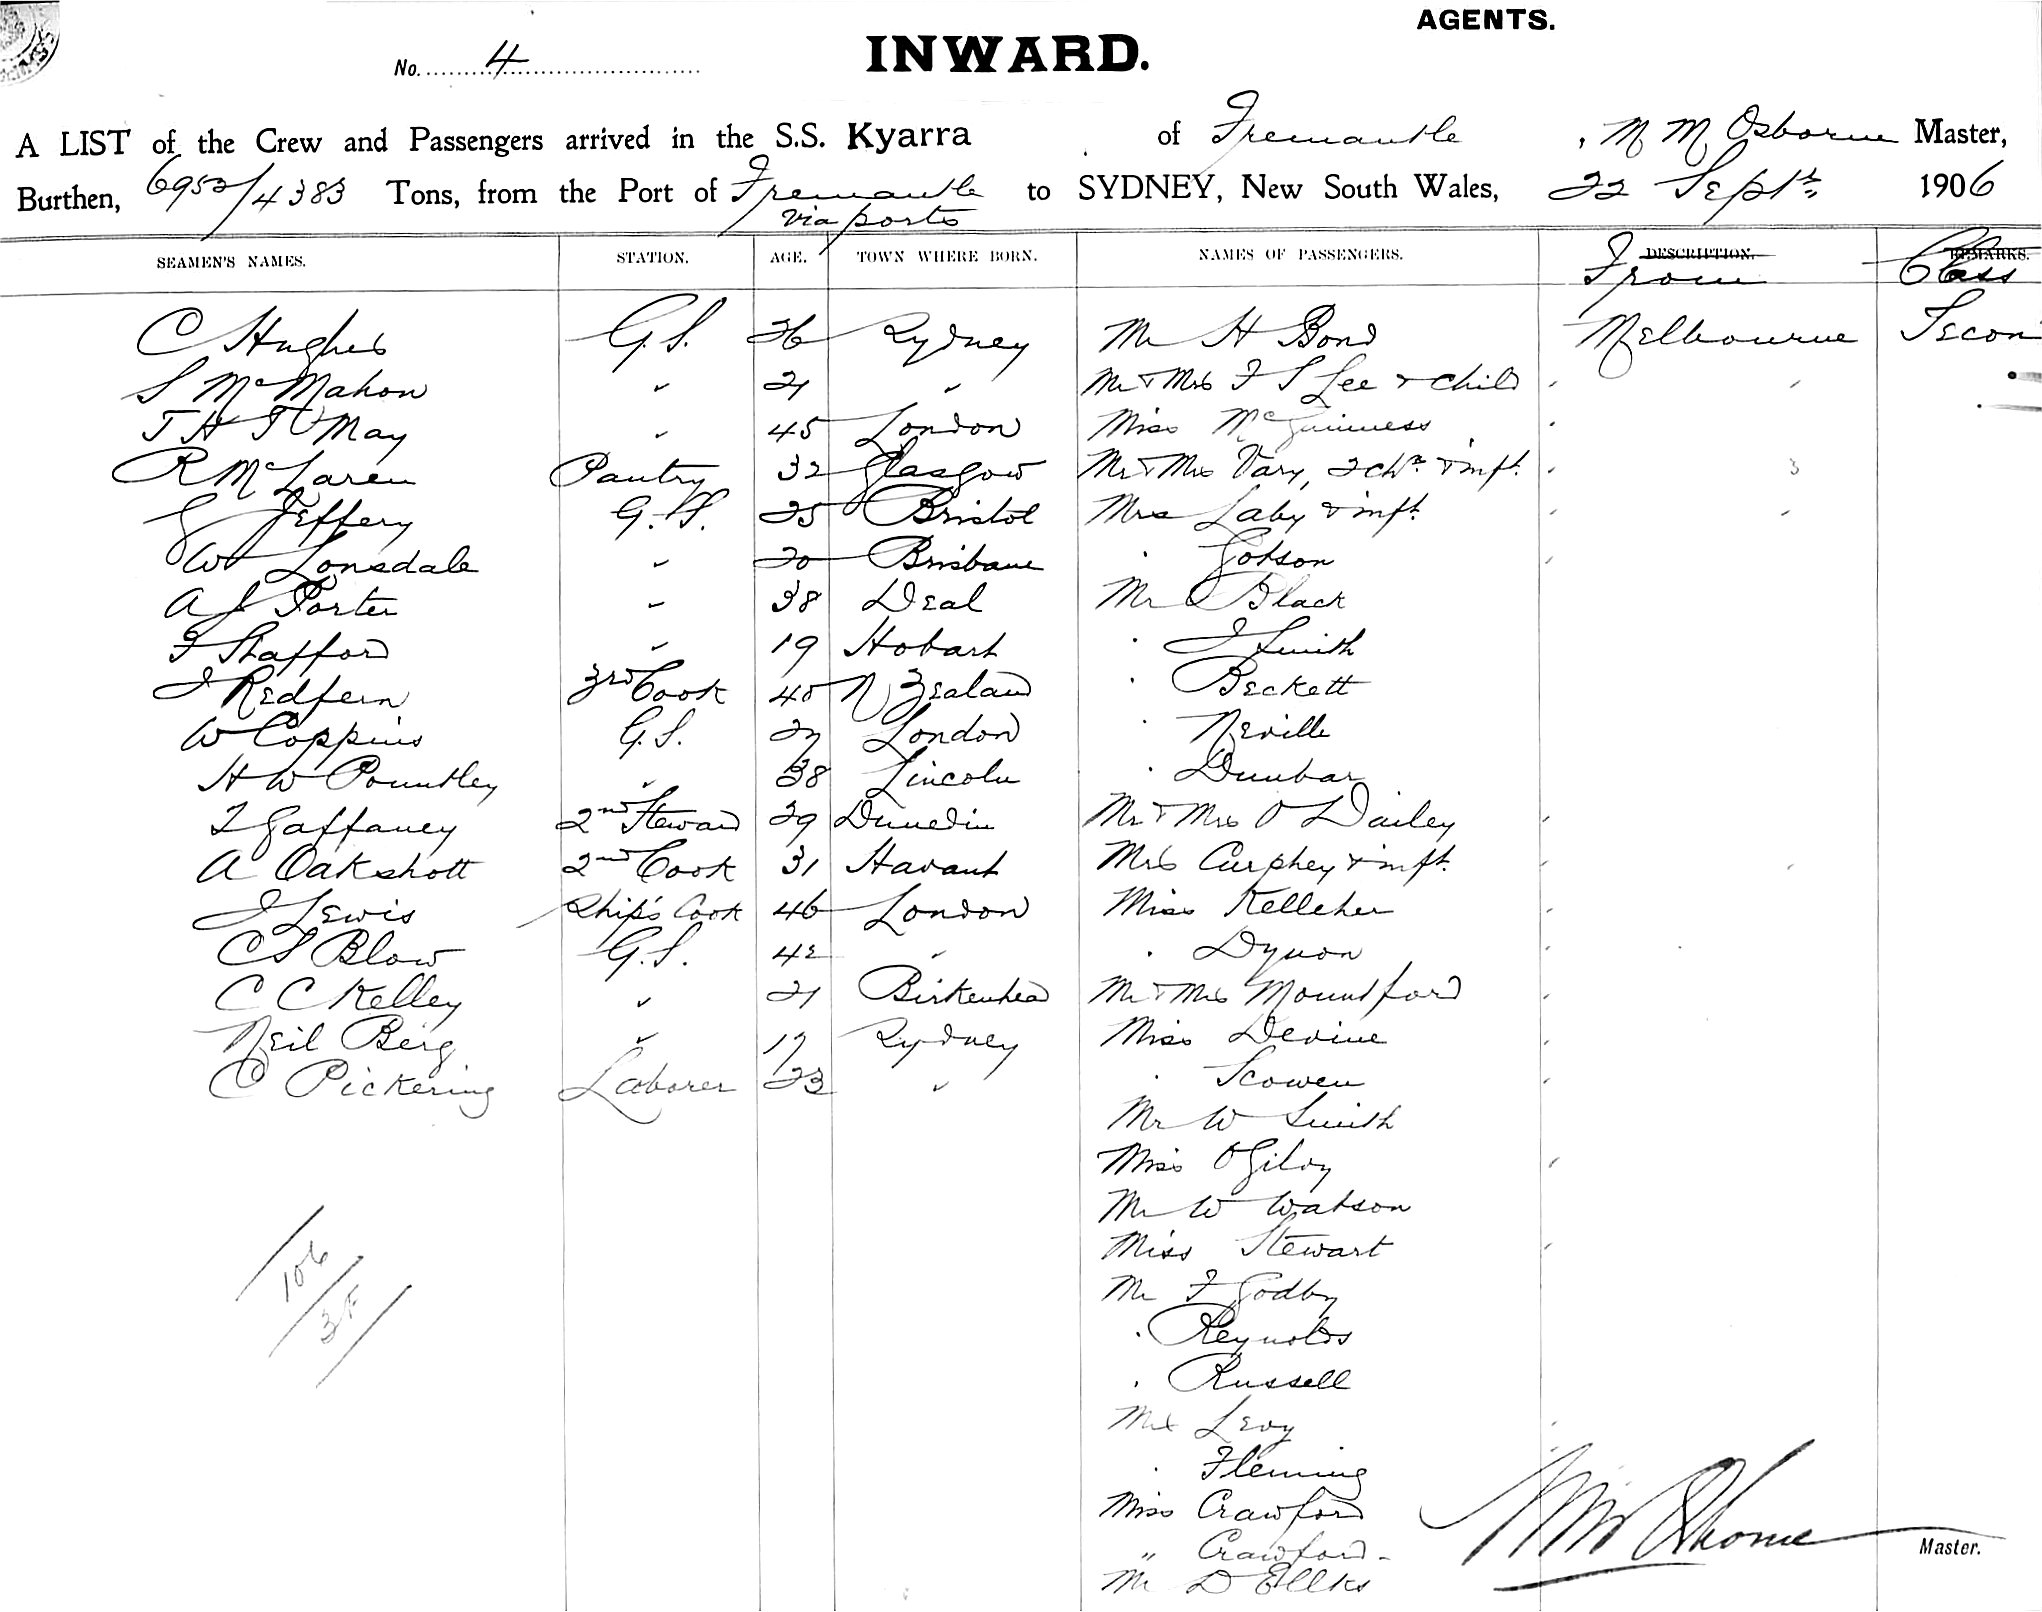 AGENTS.
No. 4 INWARD.
A LIST of the Crew and Passengers arrived in the S.S. Kyarra of Fremantle, M M Osborne Master,
Burthen, 6953/4383 Tons, from the Port of Fremantle via ports to SYDNEY, New South Wales, 22 Sept 1906
SEAMEN'S NAMES. STATION. AGE. TOWN WHERE BORN. NAMES OF PASSENGERS. DESCRIPTION. From REMARKS. Class
C Hughes G.S. 26 Sydney Mr H Bond Melbourne Secon
S McMahon " 21 " Mr & Mrs F S Lee & child
T H T May " 45 London Miss McGuinness
R McLaren Pantry 32 Glasgow Mr & Mrs Vary, 2 chn & inft. 3
G Jeffery G.S. 25 Bristol Mrs Laby & inft.
W Lonsdale " 20 Brisbane " Gotson
A J Porter " 38 Deal Mr Black
F Stafford " 19 Hobart " J Smith
J Redfern 3rd Cook 40 N Zealand " Beckett
W Coppins G.S. 27 London " Neville
H W Pountley " 38 Lincoln " Dunbar
T Gaffaney 2nd Steward 29 Dunedin Mr & Mrs O Dailey
A Oakshott 2nd Cook 31 Havant Mrs Curphey & inft.
J Lewis Ship's Cook 46 London Miss Kelleher
C S Blow G.S. 42 " " Dynon
C C Kelley " 21 Birkenhead Mr & Mrs Mountford
Neil Berg " 17 Sydney Miss Devine
C Pickering Laborer 23 " " Scowen
Mr W Smith
Miss OGilvy
Mr W Watson
Miss Stewart
Mr F Godby
" Reynolds
" Russell
Mrs Levy
" Fleming
Miss Crawford
" Crawford
Mr D Ellks
106
3F
MM Osborne Master.